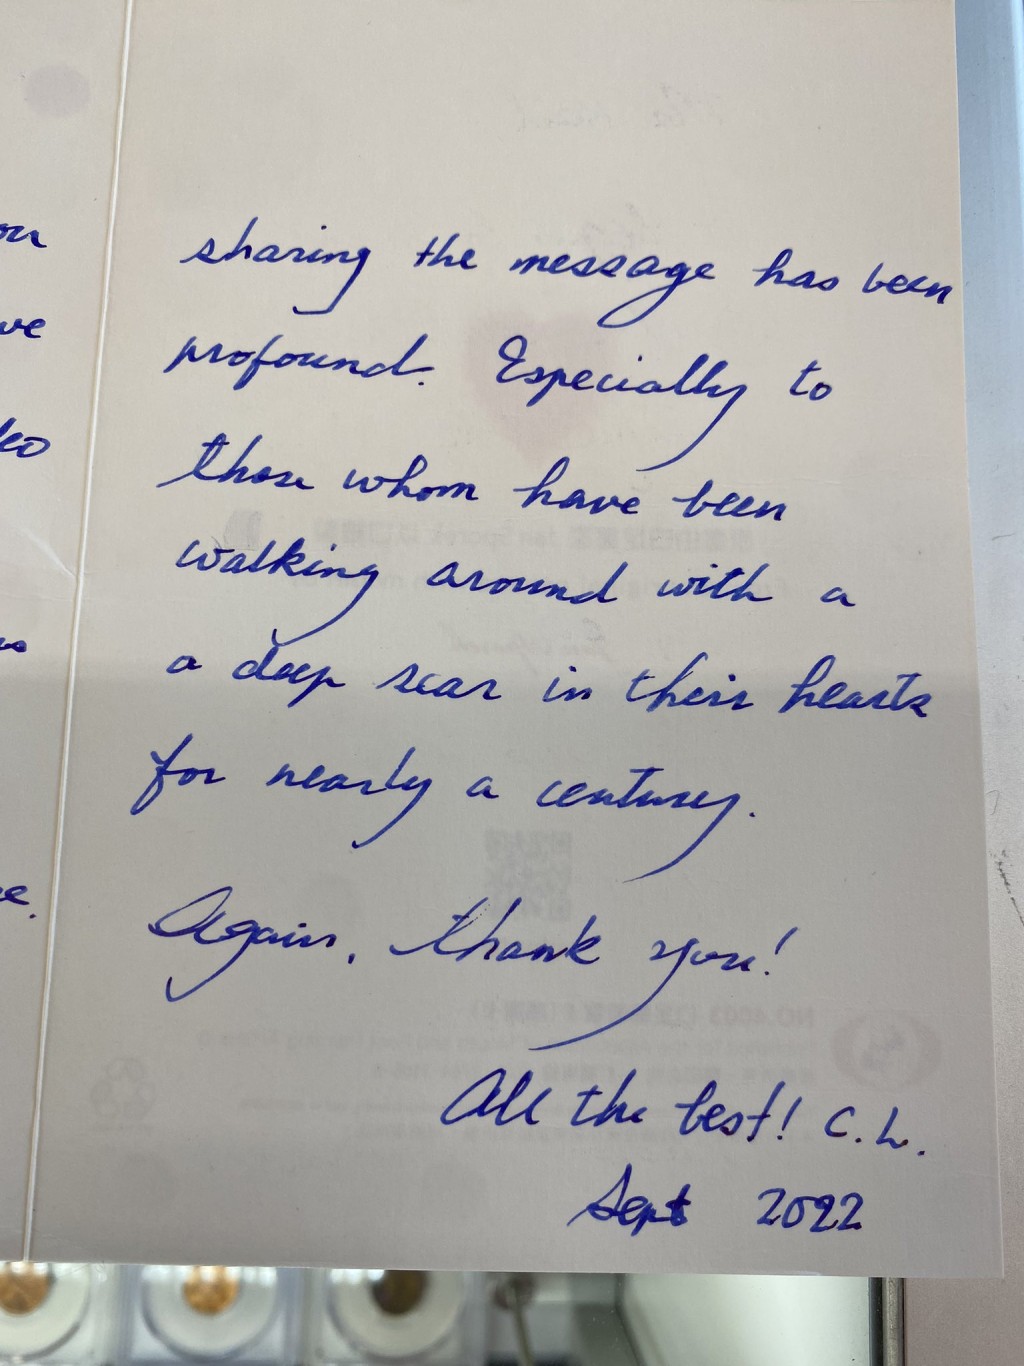 sharing the message has been
profound. Especially to
those whom have been
walking around with a
a deep scar in their hearts
for nearly a century.
Again, thank you!
All the best! C.L.
Sept 2022